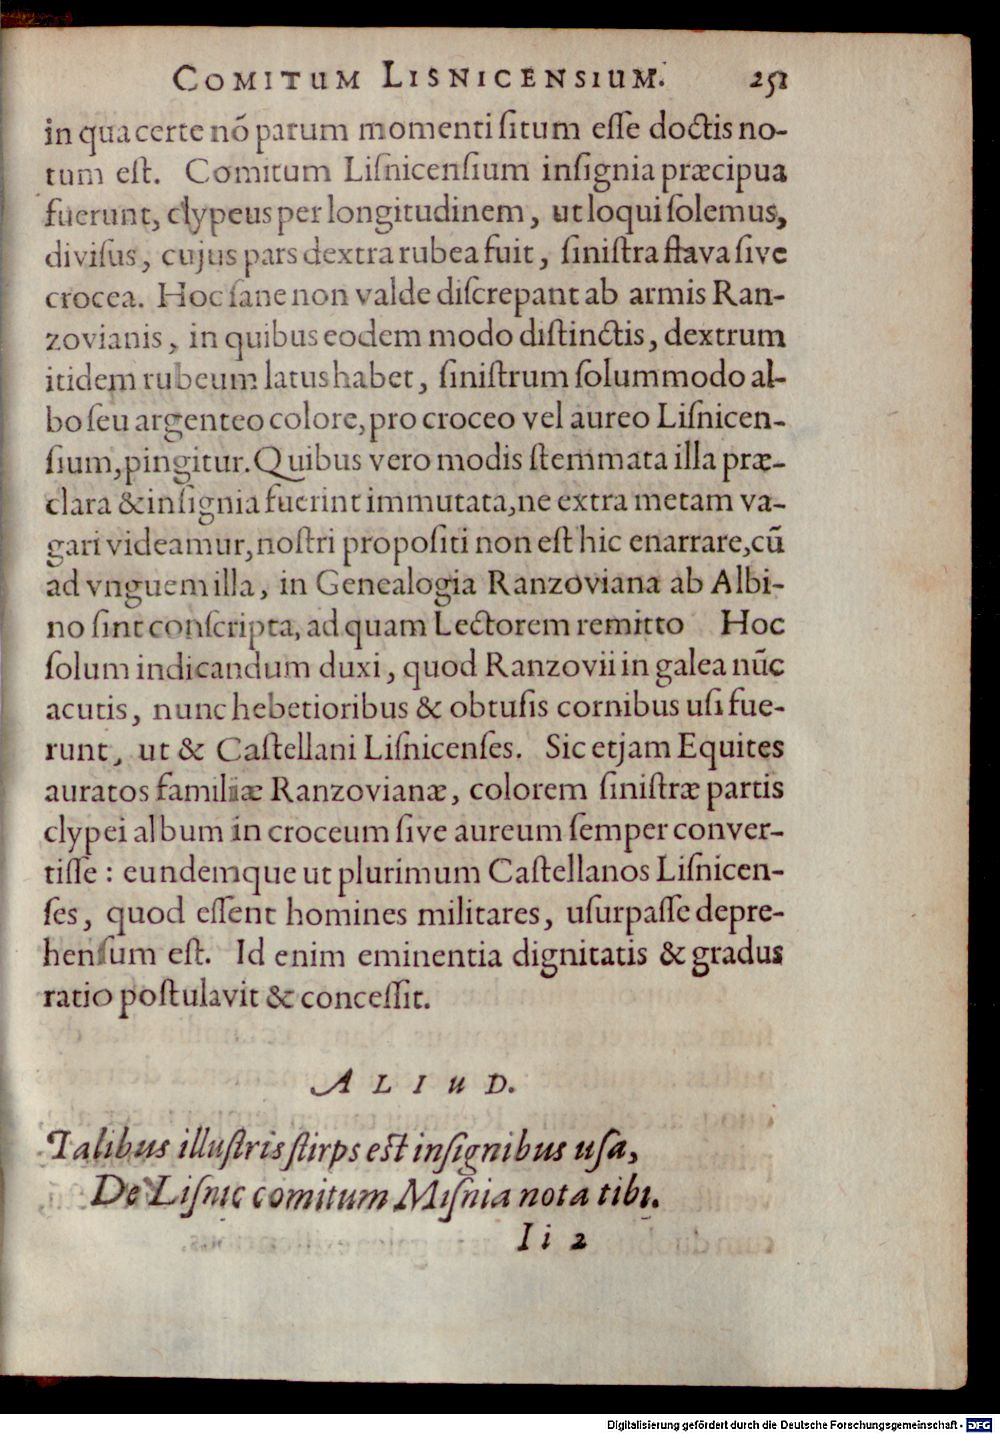 COMITUM LISNICENSIUM. 251
in qua certe nõ parum momenti ſitum eſſe doctis no-
tum eſt. Comitum Liſnicenſium inſignia præcipua
fuerunt, clypeus per longitudinem, ut loqui ſolemus,
diviſus, cujus pars dextra rubea fuit, ſiniſtra flava ſive
crocea. Hoc ſane non valde diſcrepant ab armis Ran-
zovianis, in quibus eodem modo diſtinctis, dextrum
itidem rubeum latus habet, ſiniſtrum ſolummodo al-
bo ſeu argenteo colore, pro croceo vel aureo Liſnicen-
ſium, pingitur. Quibus vero modis ſtemmata illa præ-
clara & inſignia fuerint immutata, ne extra metam va-
gari videamur, noſtri propoſiti non eſt hic enarrare, cũ
ad vnguem illa, in Genealogia Ranzoviana ab Albi-
no ſint conſcripta, ad quam Lectorem remitto Hoc
ſolum indicandum duxi, quod Ranzovii in galea nũc
acutis, nunc hebetioribus & obtuſis cornibus uſi fue-
runt, ut & Caſtellani Liſnicenſes. Sic etjam Equites
auratos familiæ Ranzovianæ, colorem ſiniſtræ partis
clypei album in croceum ſive aureum ſemper conver-
tiſſe : eundemque ut plurimum Caſtellanos Liſnicen-
ſes, quod eſſent homines militares, uſurpaſſe depre-
henſum eſt. Id enim eminentia dignitatis & gradus
ratio poſtulavit & conceſſit.
ALIUD.
Talibus illuſtris ſtirps eſt inſignibus uſa,
De Liſnic comitum Miſnia nota tibi.
Ii 2
Digitalisierung gefördert durch die Deutsche Forschungsgemeinschaft - DFG